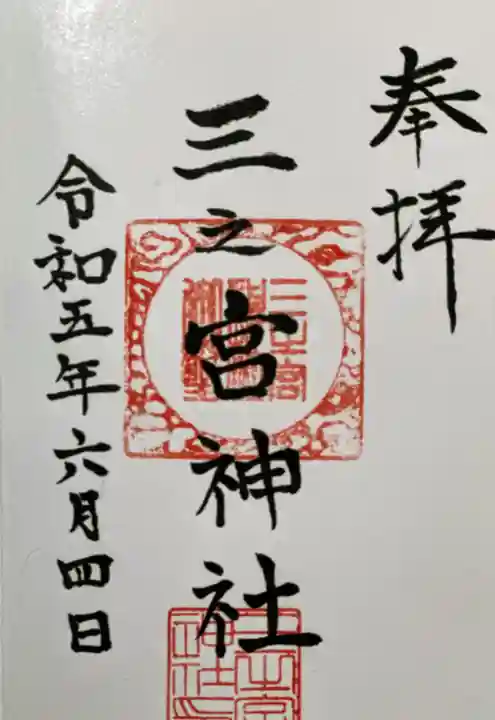 奉拝
三之宮神社
令和五年六月四日